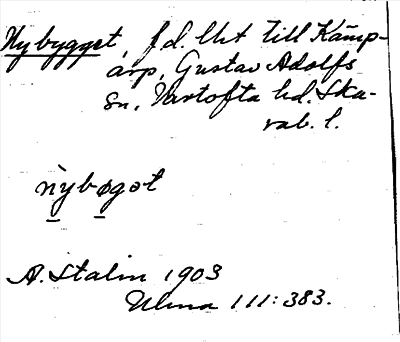 Nybygget, f.d. lht till Kämp-
arp, Gustav Adolfs
sn, Vartofta hd. Ska-
rab. l.
nỳbøgət
A. Stalin 1903
Ulma 111:383.